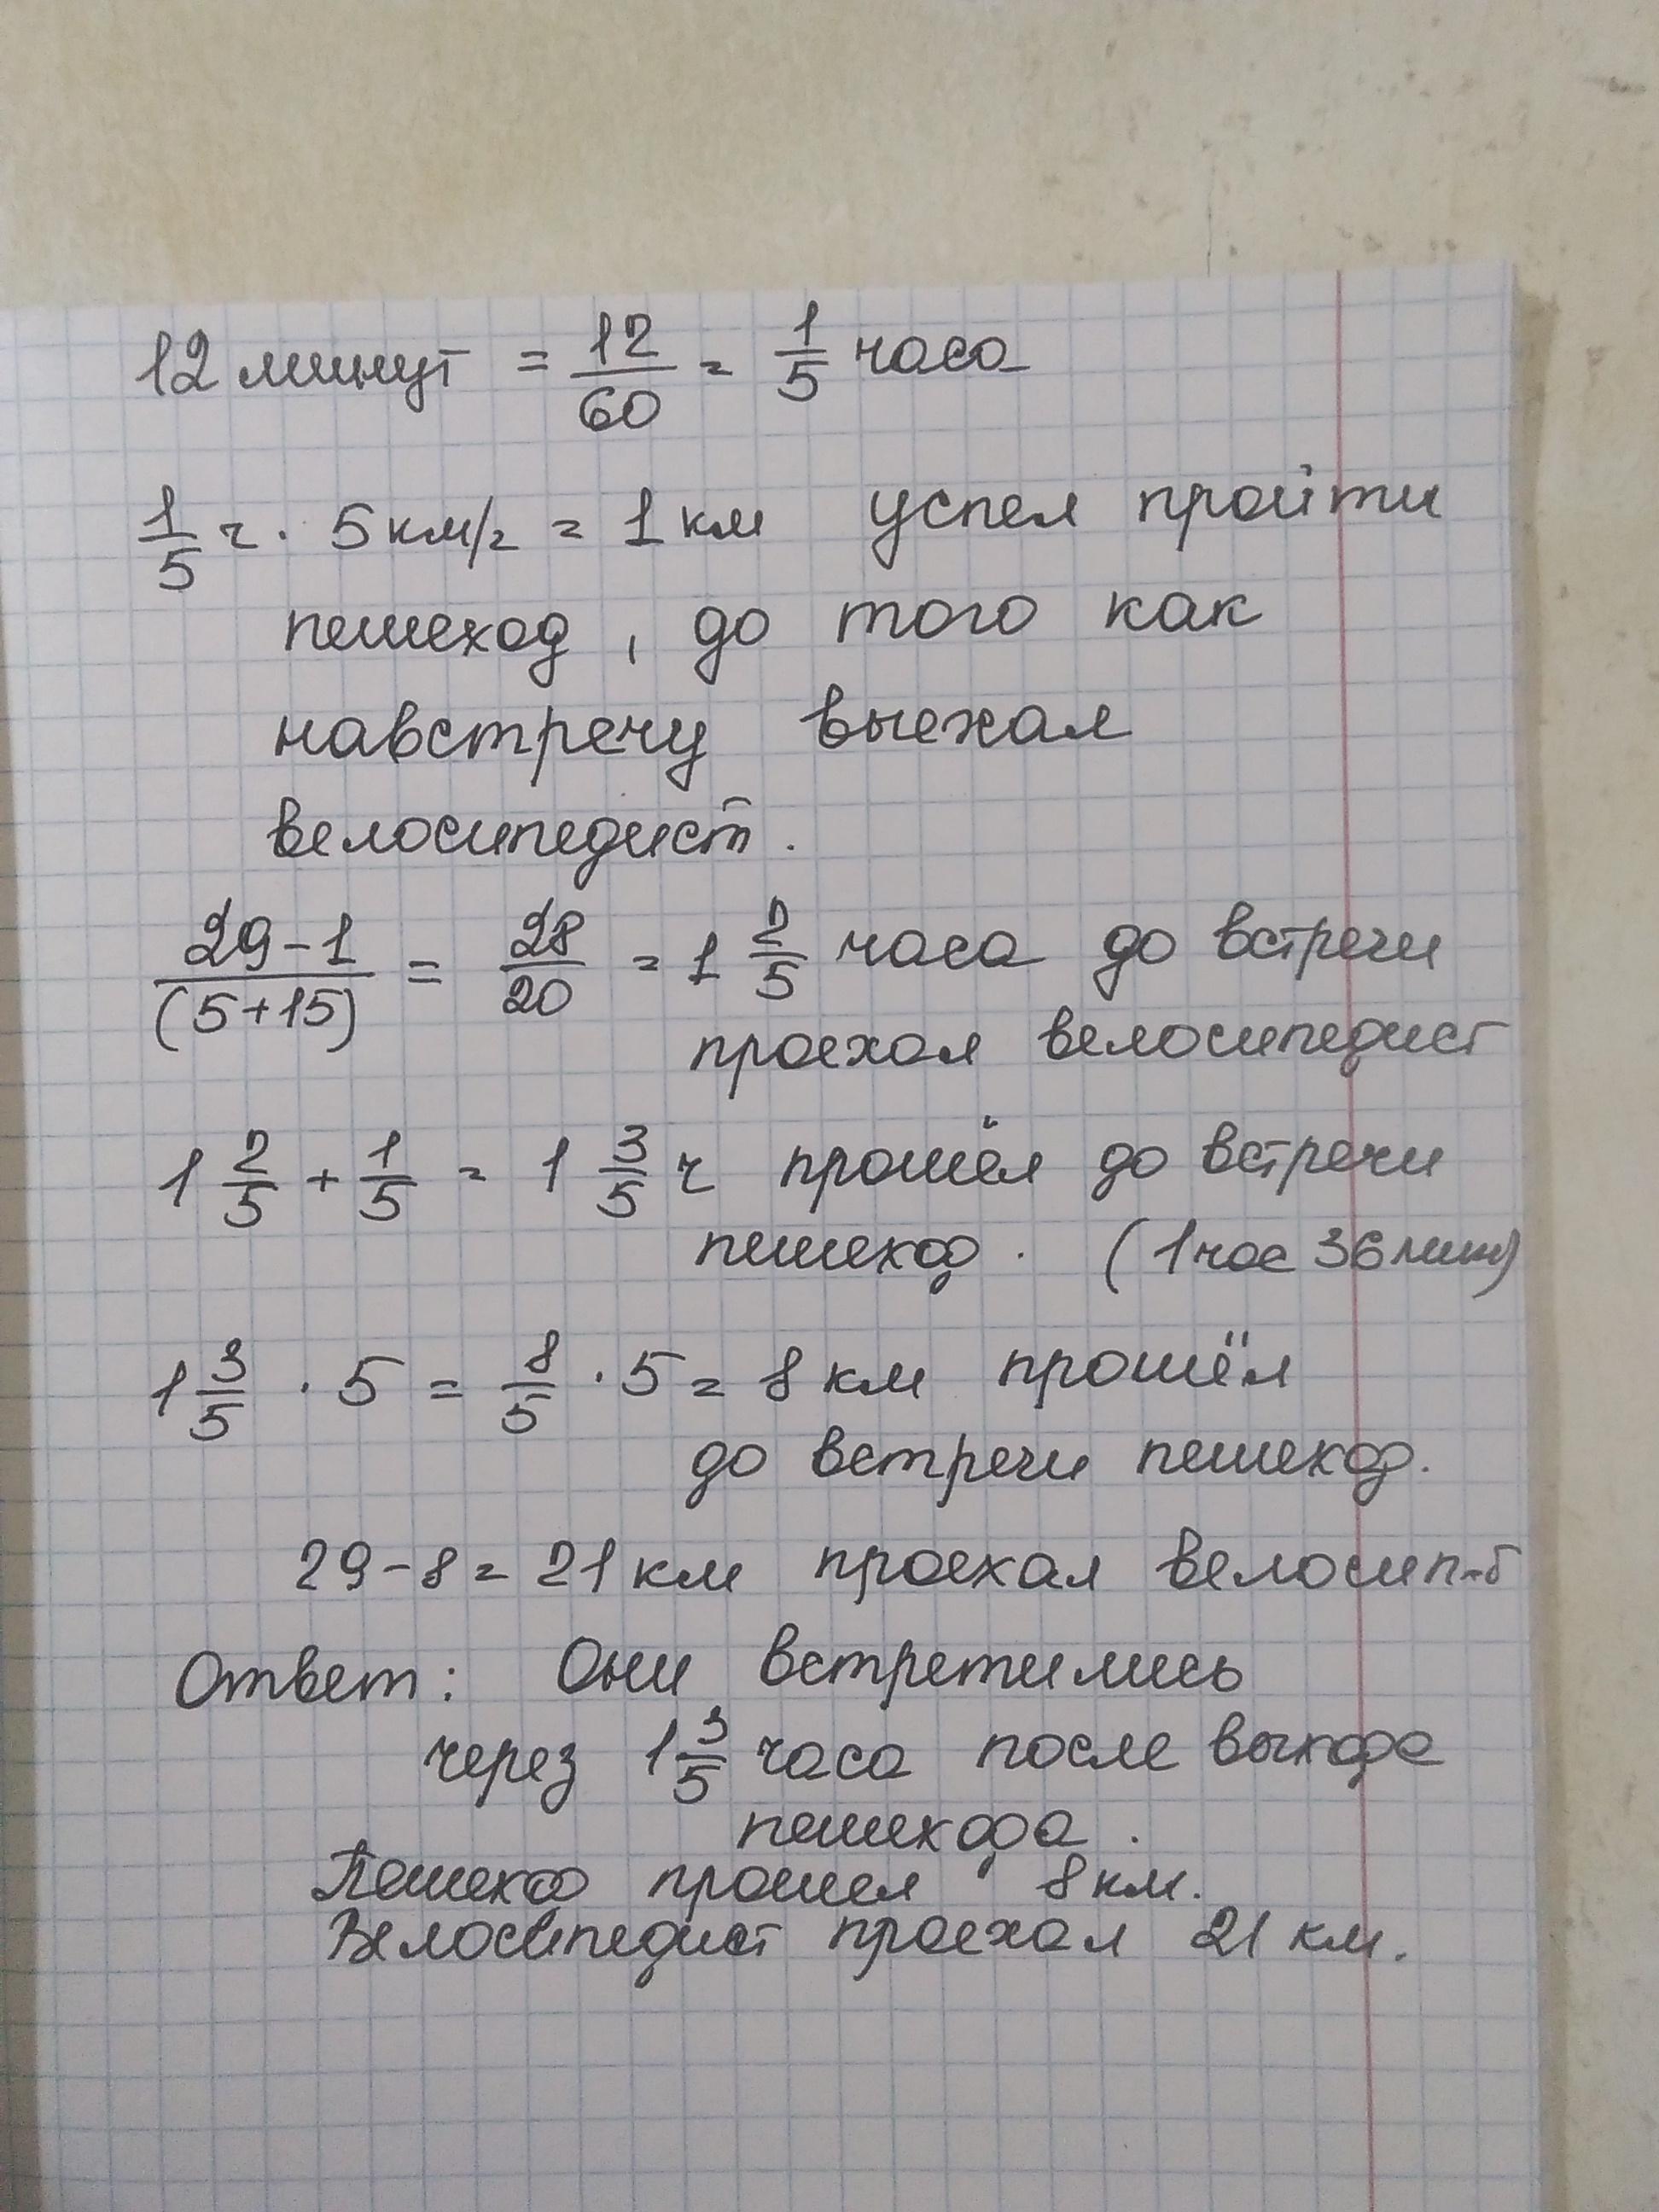 12 минут = 12/60 = 1/5 часа
1/5 ч · 5 км/ч = 1 км успел пройти
пешеход, до того как
навстречу выехал
велосипедист.
29-1/(5+15) = 28/20 = 1 2/5 часа до встречи
проехал велосипедист
1 2/5 + 1/5 = 1 3/5 ч прошёл до встречи
пешеход. (1 час 36 мин)
1 3/5 · 5 = 8/5 · 5 = 8 км прошёл
до встречи пешеход.
29-8 = 21 км проехал велосип-т
Ответ: Они встретились
через 1 3/5 часа после выхода
пешехода.
Пешеход прошел 8 км.
Велосипедист проехал 21 км.